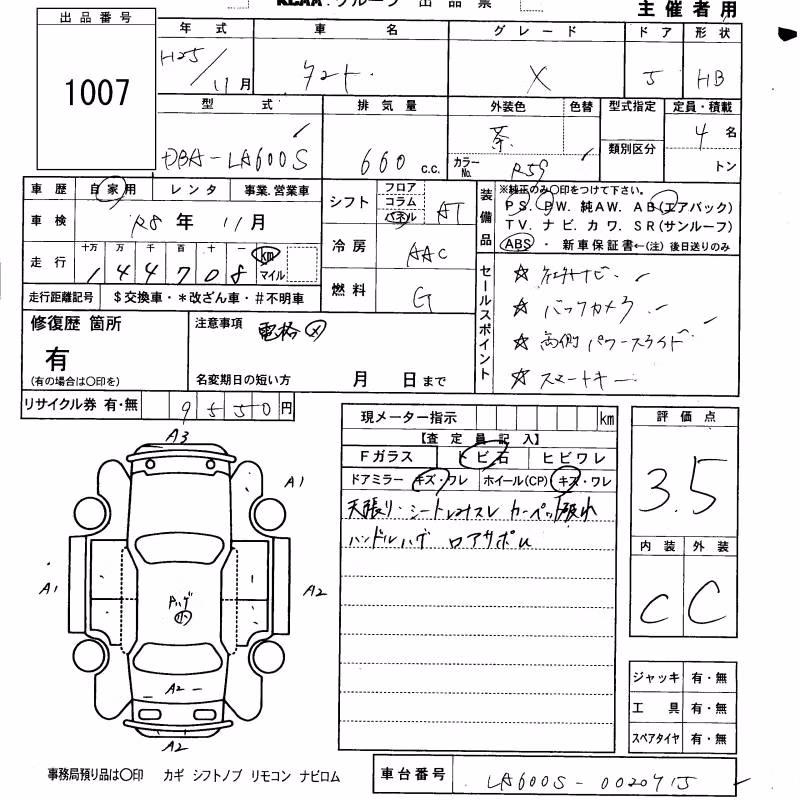 KCAA グループ 出品票
主催者用
出品番号
1007
年式 車名 グレード ドア 形状
H25/11月 タント X 5 HB
型式 排気量 外装色 色替 型式指定 定員・積載
DBA-LA600S 660 c.c. 茶 カラーNo. R59 類別区分 4名
トン
車歴 自家用 レンタ 事業.営業車
車検 R8年 11月
走行 十万 万 千 百 十 一 km マイル
144708
走行距離記号 $交換車・*改ざん車・#不明車
シフト フロア コラム パネル AT
冷房 AAC
燃料 G
装備品 ※純正のみ○印をつけて下さい。
PS. PW. 純AW. AB(エアバック)
TV. ナビ. カワ. SR(サンルーフ)
ABS ・ 新車保証書←(注)後日送りのみ
セールスポイント
☆ ナビ
☆ バックカメラ
☆ 両側パワースライド
☆ スマートキー
修復歴 箇所
有
(有の場合は○印を)
注意事項 電格
名変期日の短い方 月 日まで
リサイクル券 有・無 9550円
現メーター指示 km
【査定員記入】
Fガラス トビ石 ヒビワレ
ドアミラー キズ・ワレ ホイール(CP) キズ・ワレ
天張り・シート カーペット
ハンドルハゲ ロアサポ
評価点
3.5
内装 外装
C C
A3
A1
A1
A2
A2
A2
ジャッキ 有・無
工具 有・無
スペアタイヤ 有・無
事務局預り品は○印 カギ シフトノブ リモコン ナビロム
車台番号 LA600S-0020715